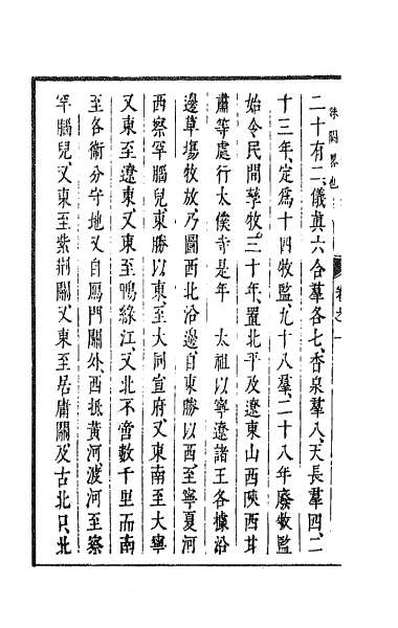 二十有二儀真六合羣各七香泉羣八天長羣四二
十三年定爲十四牧監九十八羣二十八年廢牧監
始令民間孳牧三十年置北平及遼東山西陝西甘
肅等處行太僕寺是年　太祖以寧遼諸王各據沿
邊草塲牧放乃圖西北沿邊自東勝以西至寧夏河
西察罕腦兒東勝以東至大同宣府又東南至大寧
又東至遼東又東至鴨綠江又北不啻數千里而南
至各衞分守地又自鴈門關外西抵黃河渡河至察
罕腦兒又東至紫荆關又東至居庸關及古北口北
卷之一